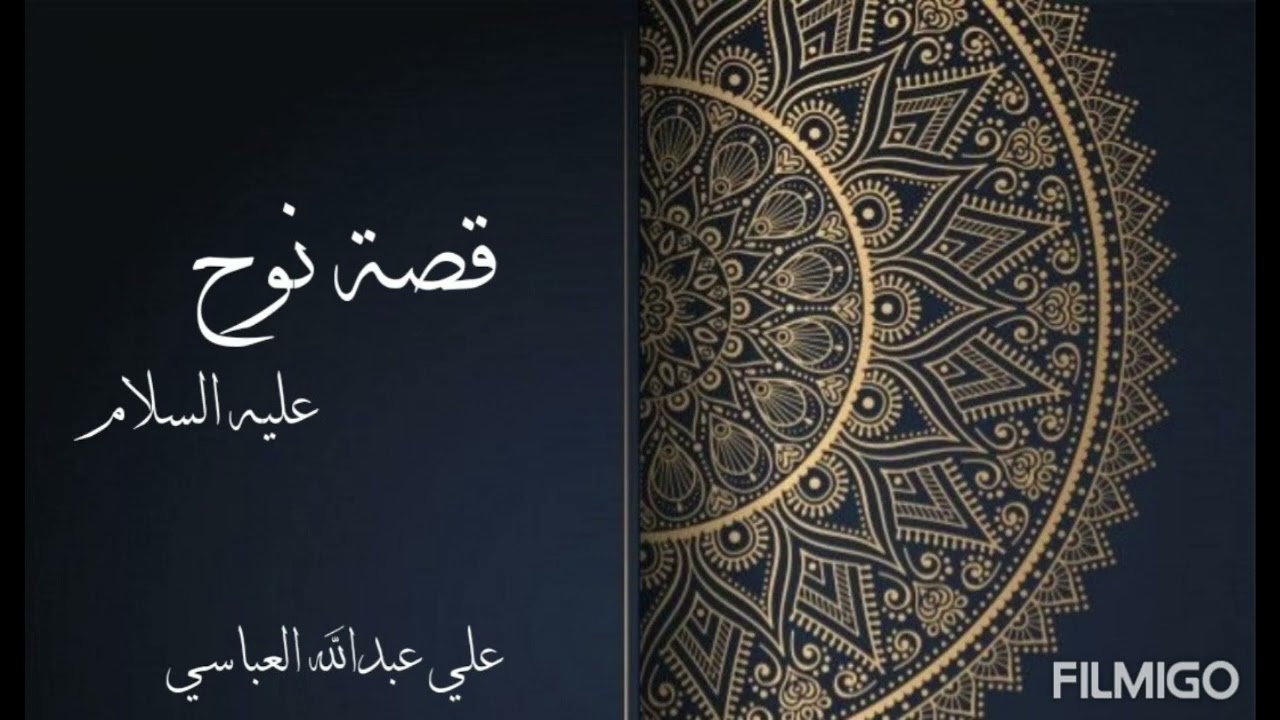 قصة نوح
عليه السلام
علي عبدالله العباسي
FILMIGO